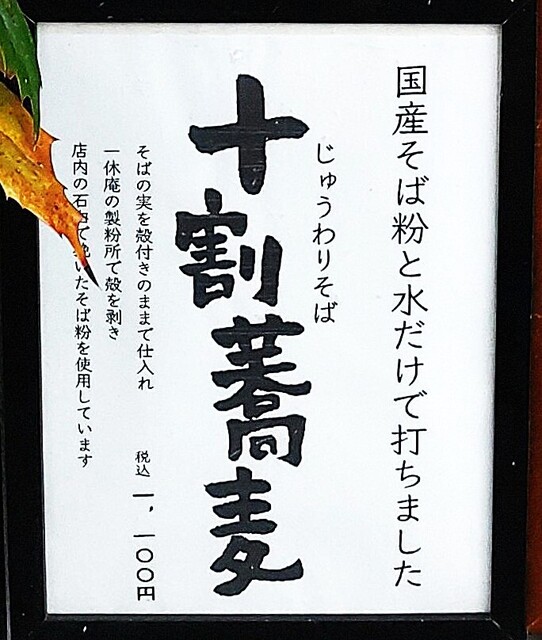 国産そば粉と水だけで打ちました
じゅうわりそば
十割蕎麦
そばの実を殻付きのままで仕入れ
税込 一，一〇〇円
一休庵の製粉所で殻を剥き
店内の石臼で挽いたそば粉を使用しています